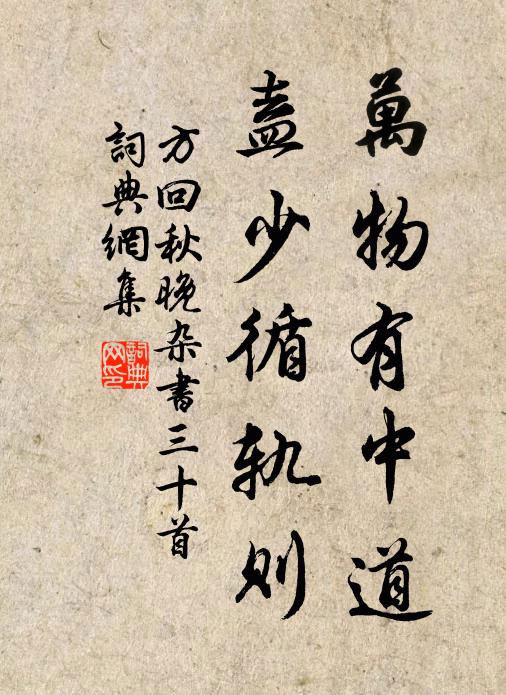 萬物有中道
盍少循軌則
方回秋晚杂書三十首
詞典網集
詞典网印